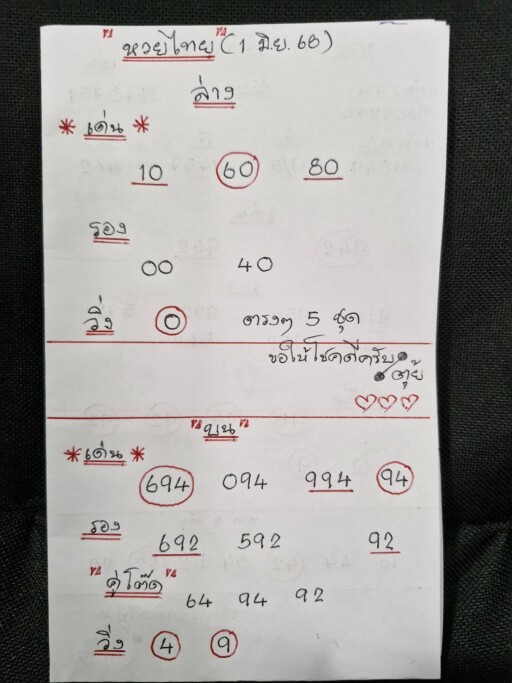 หวยไทย (1 มิ.ย. 68)
ล่าง
* เด่น *
10 60 80
รอง
00 40
วิ่ง 0 ตรงๆ 5 ชุด
ขอให้โชคดีครับ
ตุ้ย
บน
* เด่น *
694 094 994 94
รอง 692 592 92
คู่โต๊ด 64 94 92
วิ่ง 4 9